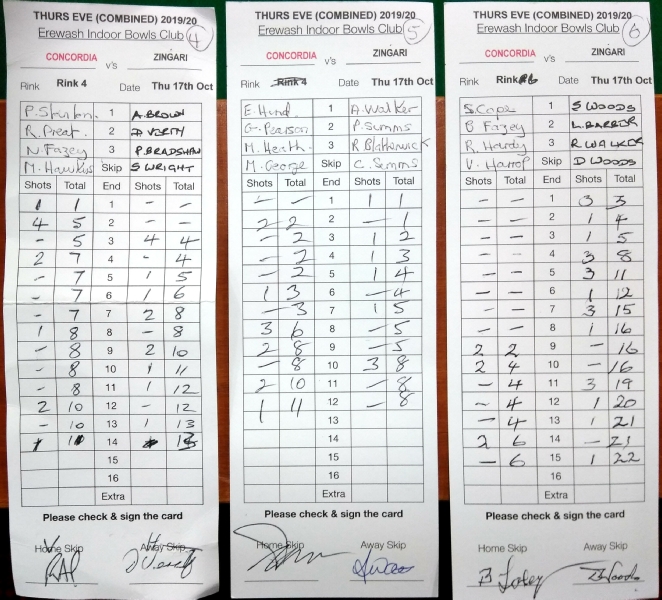 THURS EVE (COMBINED) 2019/20
Erewash Indoor Bowls Club 4
CONCORDIA v's ZINGARI
Rink Rink 4 Date Thu 17th Oct
1 A. BROWN
R. Preat. 2 D VERITY
N. Fazey 3 P BRADSHAW
M. Hawkins Skip S WRIGHT
Shots Total End Shots Total
1 1 1 - -
4 5 2 - -
- 5 3 4 4
2 7 4 - 4
- 7 5 1 5
- 7 6 1 6
- 7 7 2 8
1 8 8 - 8
- 8 9 2 10
- 8 10 1 11
- 8 11 1 12
2 10 12 - 12
- 10 13 1 13
14 13
15
16
Extra
Please check & sign the card
Home Skip Away Skip
THURS EVE (COMBINED) 2019/20
Erewash Indoor Bowls Club 5
CONCORDIA v's ZINGARI
Rink Rink 4 Date Thu 17th Oct
E. Hind 1 A. Walker
G. Pearson 2 P. Simms
M. Heath. 3 R Blatherwick
M. George Skip C. Simms
Shots Total End Shots Total
- - 1 1 1
2 2 2 - 1
- 2 3 1 2
- 2 4 1 3
- 2 5 1 4
1 3 6 - 4
- 3 7 1 5
3 6 8 - 5
2 8 9 - 5
- 8 10 3 8
2 10 11 - 8
1 11 12 - 8
13
14
15
16
Extra
Please check & sign the card
Home Skip Away Skip
THURS EVE (COMBINED) 2019/20
Erewash Indoor Bowls Club 6
CONCORDIA v's ZINGARI
Rink Rink 6 Date Thu 17th Oct
S. Cope 1 S WOODS
B Fazey 2 L. BARBER
R. Hardy 3 R WALKER
V. Harrop Skip D WOODS
Shots Total End Shots Total
- - 1 3 3
- - 2 1 4
- - 3 1 5
- - 4 3 8
- - 5 3 11
- - 6 1 12
- - 7 3 15
- - 8 1 16
2 2 9 - 16
2 4 10 - 16
- 4 11 3 19
- 4 12 1 20
- 4 13 1 21
2 6 14 - 21
- 6 15 1 22
16
Extra
Please check & sign the card
Home Skip Away Skip
B Fazey D Woods